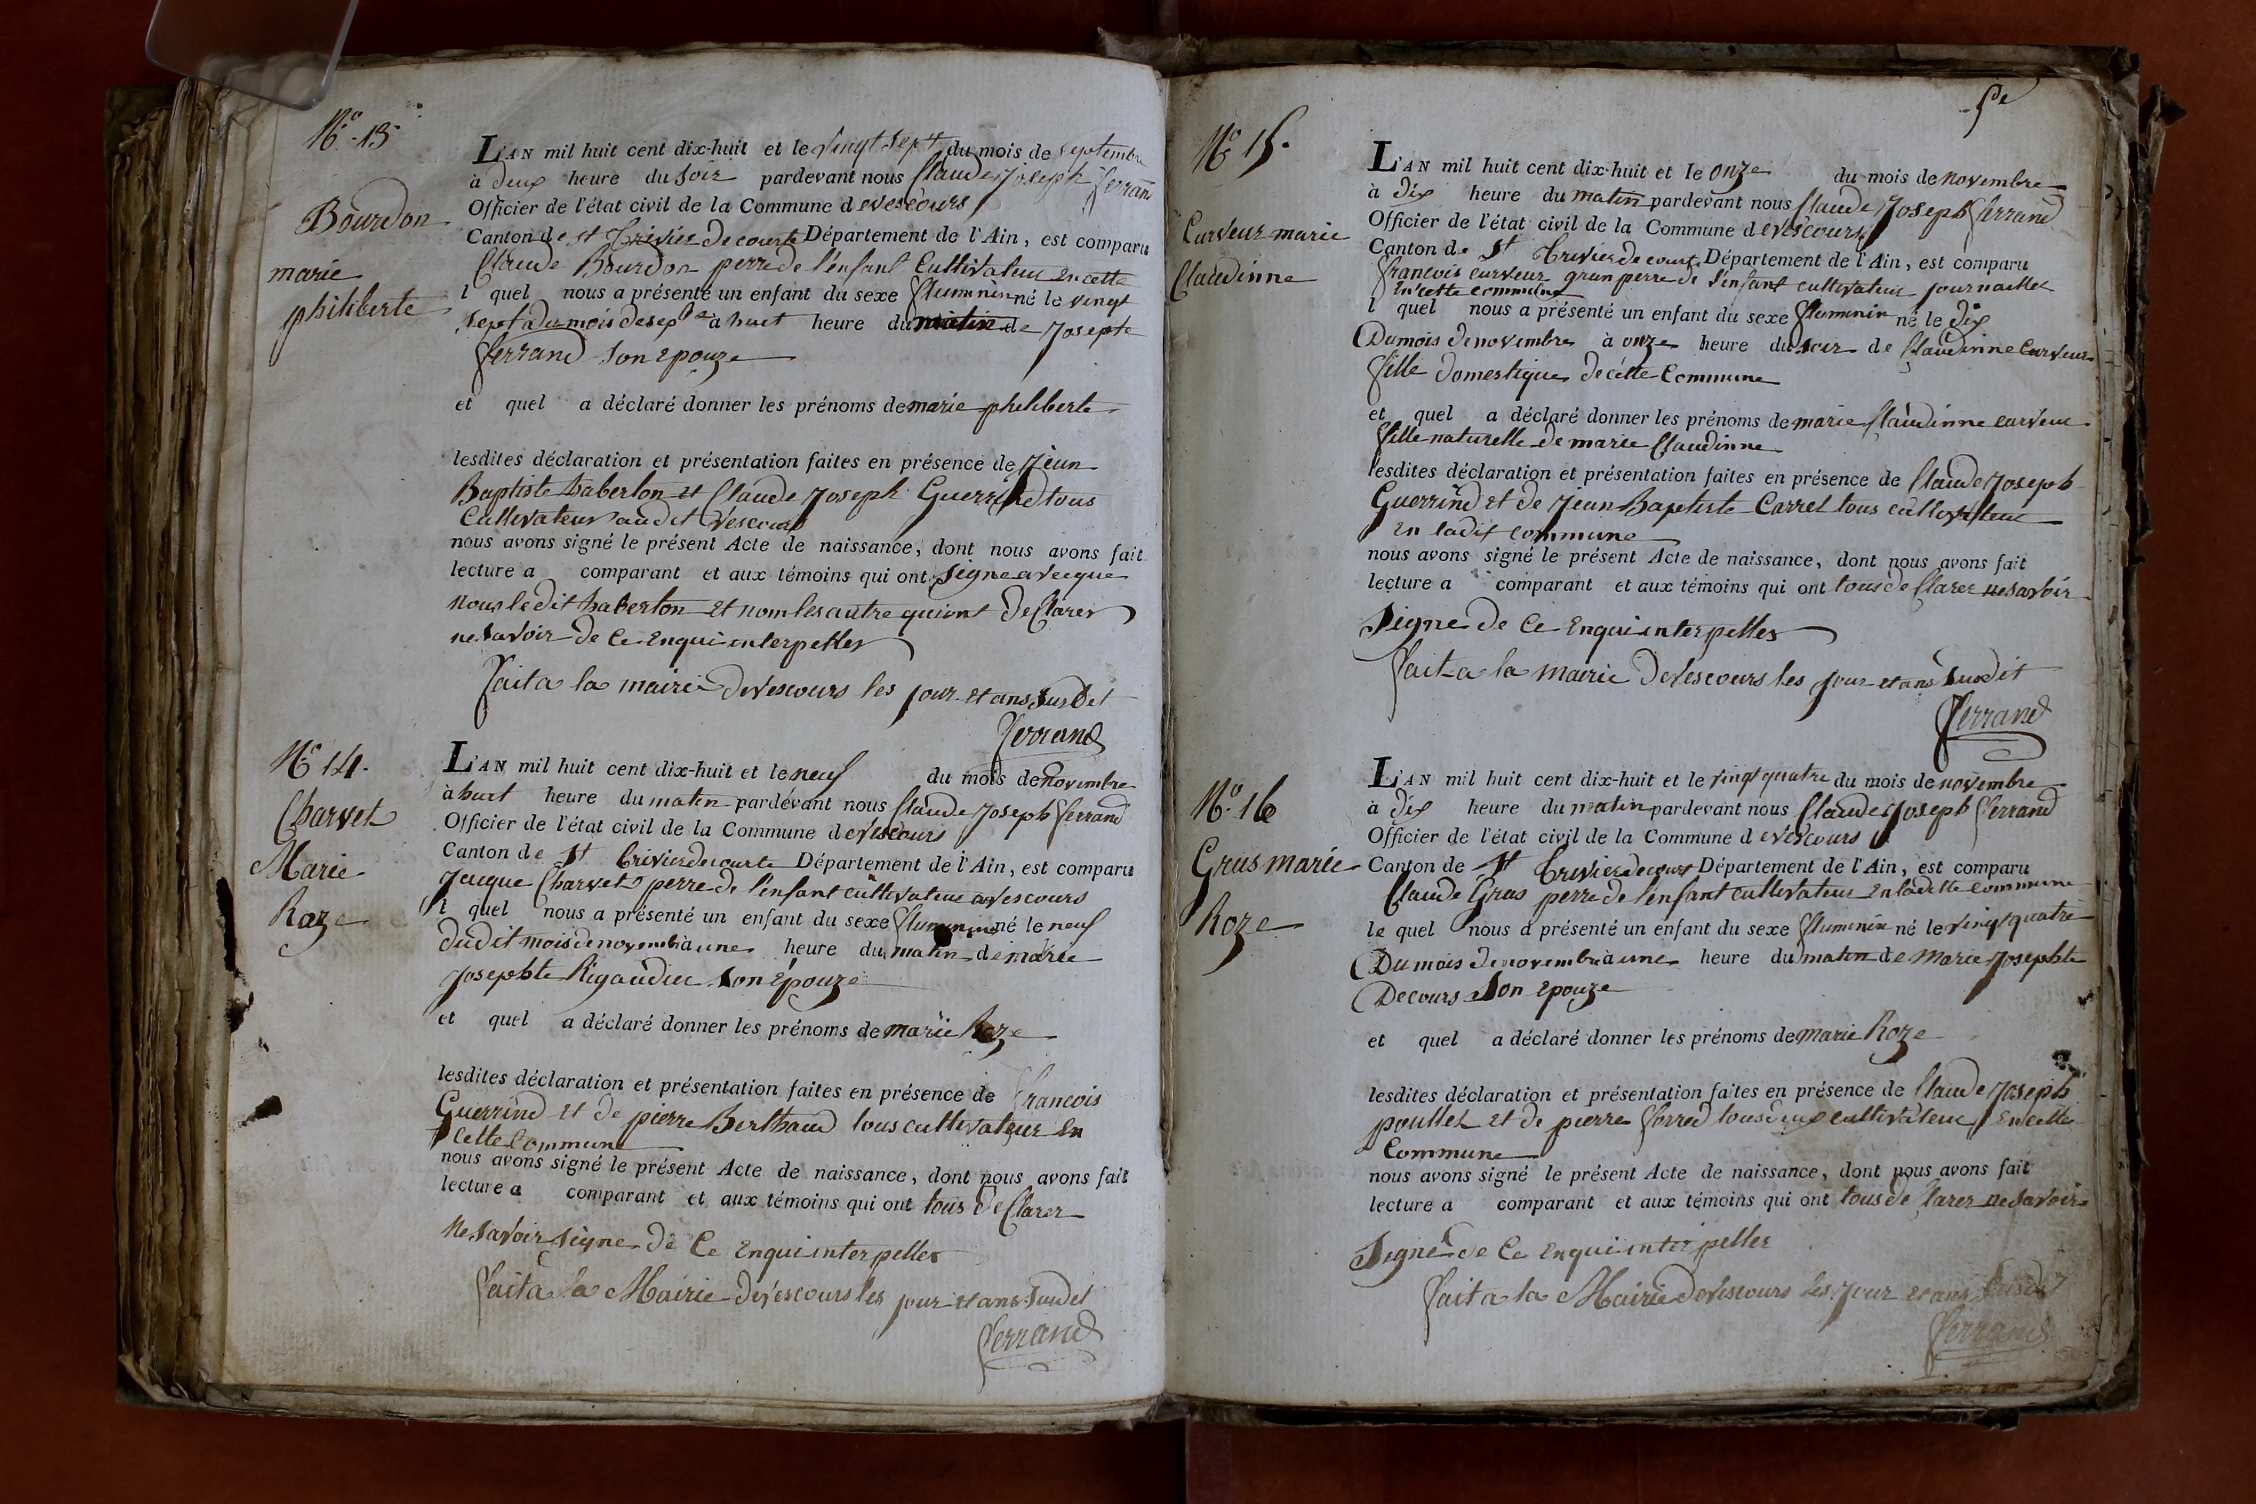 N.o 13
Bourdon
marie
philiberte
L'AN mil huit cent dix-huit et le vingt sept du mois de septembre
à deux heure du soir pardevant nous Claude Joseph ferrand
Officier de l'état civil de la Commune d evescours
Canton de st Trivier de courte Département de l'Ain, est comparu
Claude Bourdon perre de l'enfant Cultivateur en cette
l quel nous a présenté un enfant du sexe fluminin né le vingt
sept du mois de sepbre à huit heure du matin de josepte
ferrand son epouze
et quel a déclaré donner les prénoms de marie philiberte
lesdites déclaration et présentation faites en présence de jean
Baptiste haberton et Claude joseph Guerrind tous
Cultivateur audit vescours
nous avons signé le présent Acte de naissance, dont nous avons fait
lecture a comparant et aux témoins qui ont signe avecque
nous le dit haberton et nom les autre qui ont de Clarer
ne savoir de Ce enqui interpeller
fait a la mairie de vescours les jour et ans susdet
ferrand
N.o 14.
Charvet
Marie
Roze
L'AN mil huit cent dix-huit et le neuf du mois de novembre
à huit heure du maten pardevant nous Claude joseph ferrand
Officier de l'état civil de la Commune d evescours
Canton de st trivier de courte Département de l'Ain, est comparu
jacque Charvet perre de l'enfant cultivateur a vescours
l quel nous a présenté un enfant du sexe fluminin né le neuf
dudit mois de novembre à une heure du maten de marie
josephte Rigaudier son épouze
et quel a déclaré donner les prénoms de marie Roze
lesdites déclaration et présentation faites en présence de francois
Guerrind et de pierre Berthaud tous cultivateur en
cette Commune
nous avons signé le présent Acte de naissance, dont nous avons fait
lecture a comparant et aux témoins qui ont tous de Clarer
ne savoir signe de Ce enqui interpeller
fait a la Mairie de vescours les jour et ans sudet
ferrand
N.o 15.
Curveur marie
Claudinne
L'AN mil huit cent dix-huit et le onze du mois de novembre
à dix heure du maten pardevant nous Claude joseph ferrand
Officier de l'état civil de la Commune d evescours
Canton de st trivier de courte Département de l'Ain, est comparu
francois curveur gran perre de l'enfant cultivateur journailler
en cette commune
l quel nous a présenté un enfant du sexe fluminin né le dix
Du mois de novembre à onze heure du soir de Claudinne Curveur
fille domestique de cette Commune
et quel a déclaré donner les prénoms de marie Claudinne curveur
fille naturelle de marie Claudinne
lesdites déclaration et présentation faites en présence de Claude joseph
Guerrind et de jean Baptiste Carret tous cultivateur
en ladit commune
nous avons signé le présent Acte de naissance, dont nous avons fait
lecture a comparant et aux témoins qui ont tous de Clarer ne savoir
signe de Ce enqui interpeller
fait a la mairie de vescours les jour et ans susdit
ferrand
N.o 16
Gras marie
Roze
L'AN mil huit cent dix-huit et le vingt quatre du mois de novembre
à dix heure du maten pardevant nous Claude joseph ferrand
Officier de l'état civil de la Commune d evescours
Canton de st trivier de court Département de l'Ain, est comparu
Claude Gras perre de l'enfant cultivateur en ladette commune
le quel nous a présenté un enfant du sexe fluminin né le vingt quatre
Du mois de novembre à une heure du maten de Marie josephte
Decours son epouze
et quel a déclaré donner les prénoms de marie Roze
lesdites déclaration et présentation faites en présence de Claude joseph
poullet et de pierre forred tous deux cultivateur en cette
Commune
nous avons signé le présent Acte de naissance, dont nous avons fait
lecture a comparant et aux témoins qui ont tous de Clarer ne savoir
signe de Ce enqui interpeller
fait a la Mairie de vescours les jour et ans susdit
ferrand